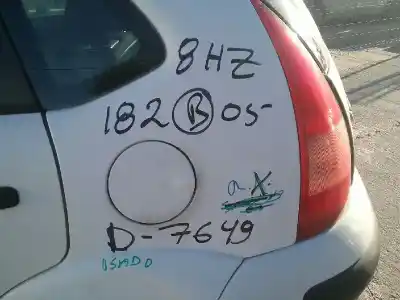 8HZ
182 B 05-
a.X.
D-7649